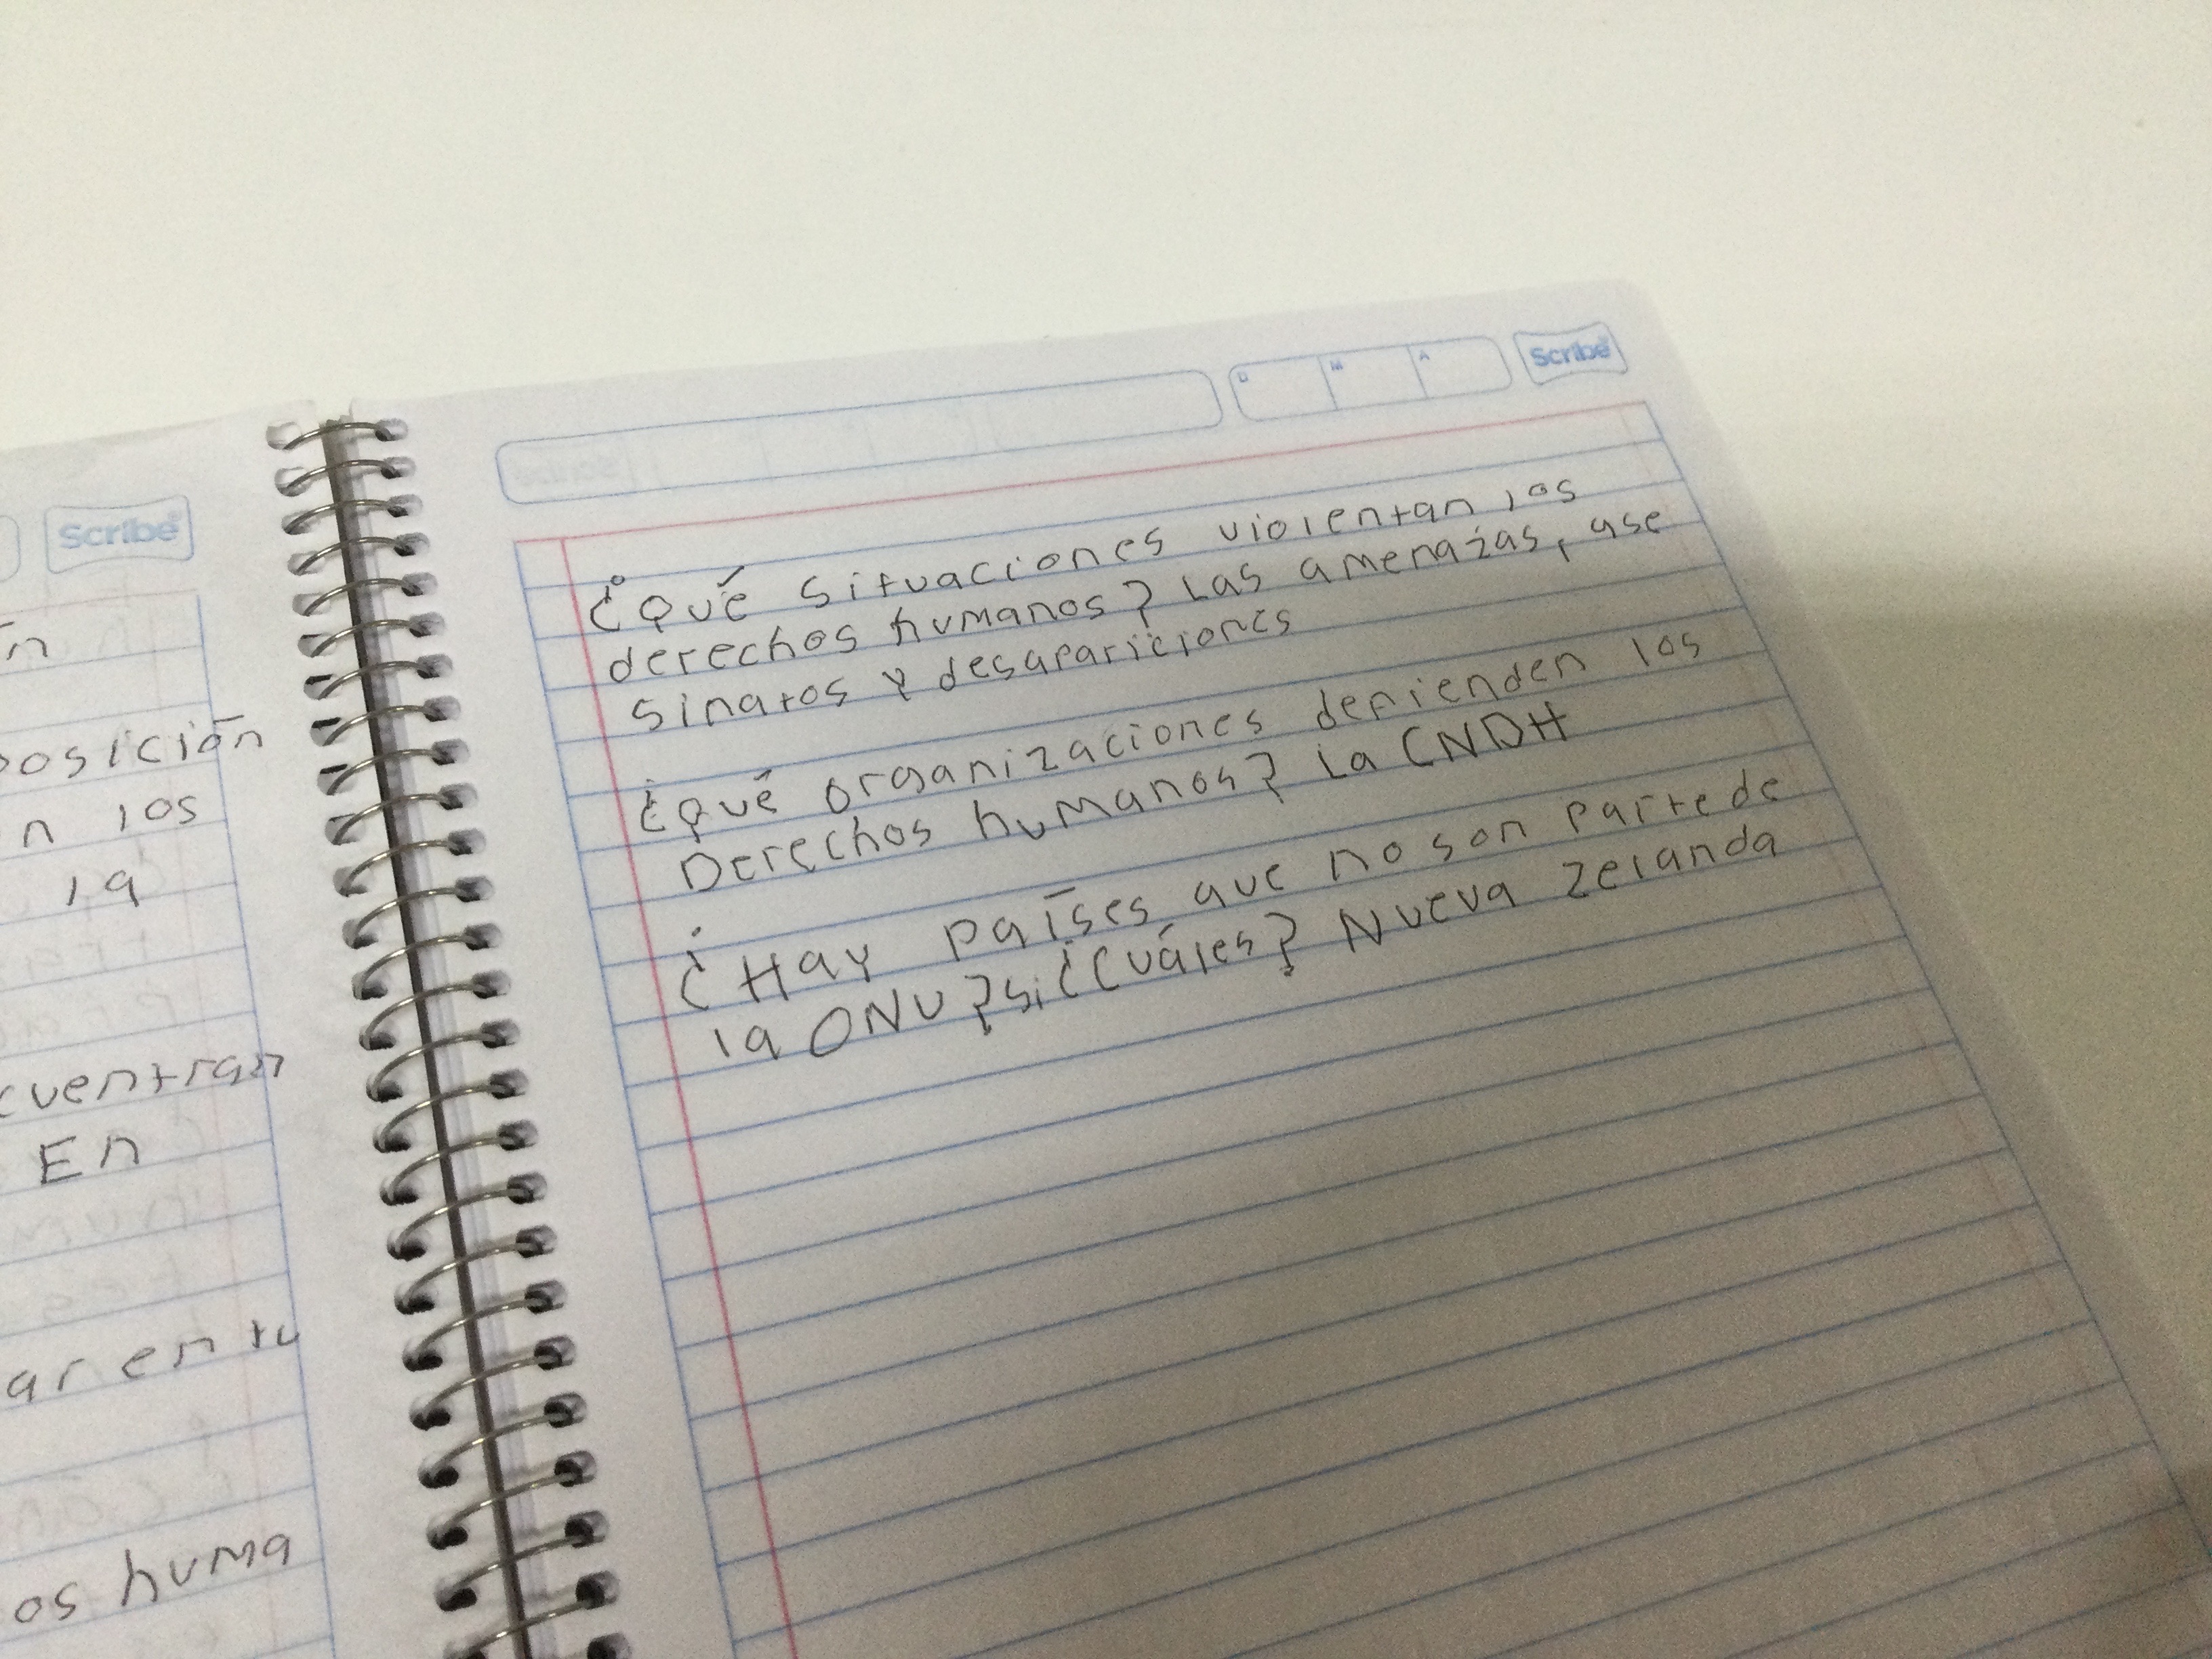 Scribe
ín
posición
n los
la
cuentran
En
ar en tu
os huma
D M A Scribe
¿Qué situaciones violentan los
derechos humanos? Las amenazas, ase
sinatos y desapariciones
¿Qué organizaciones defienden los
Derechos humanos? La CNDH
¿Hay países que no son parte de
la ONU? si ¿Cuáles? Nueva Zelanda